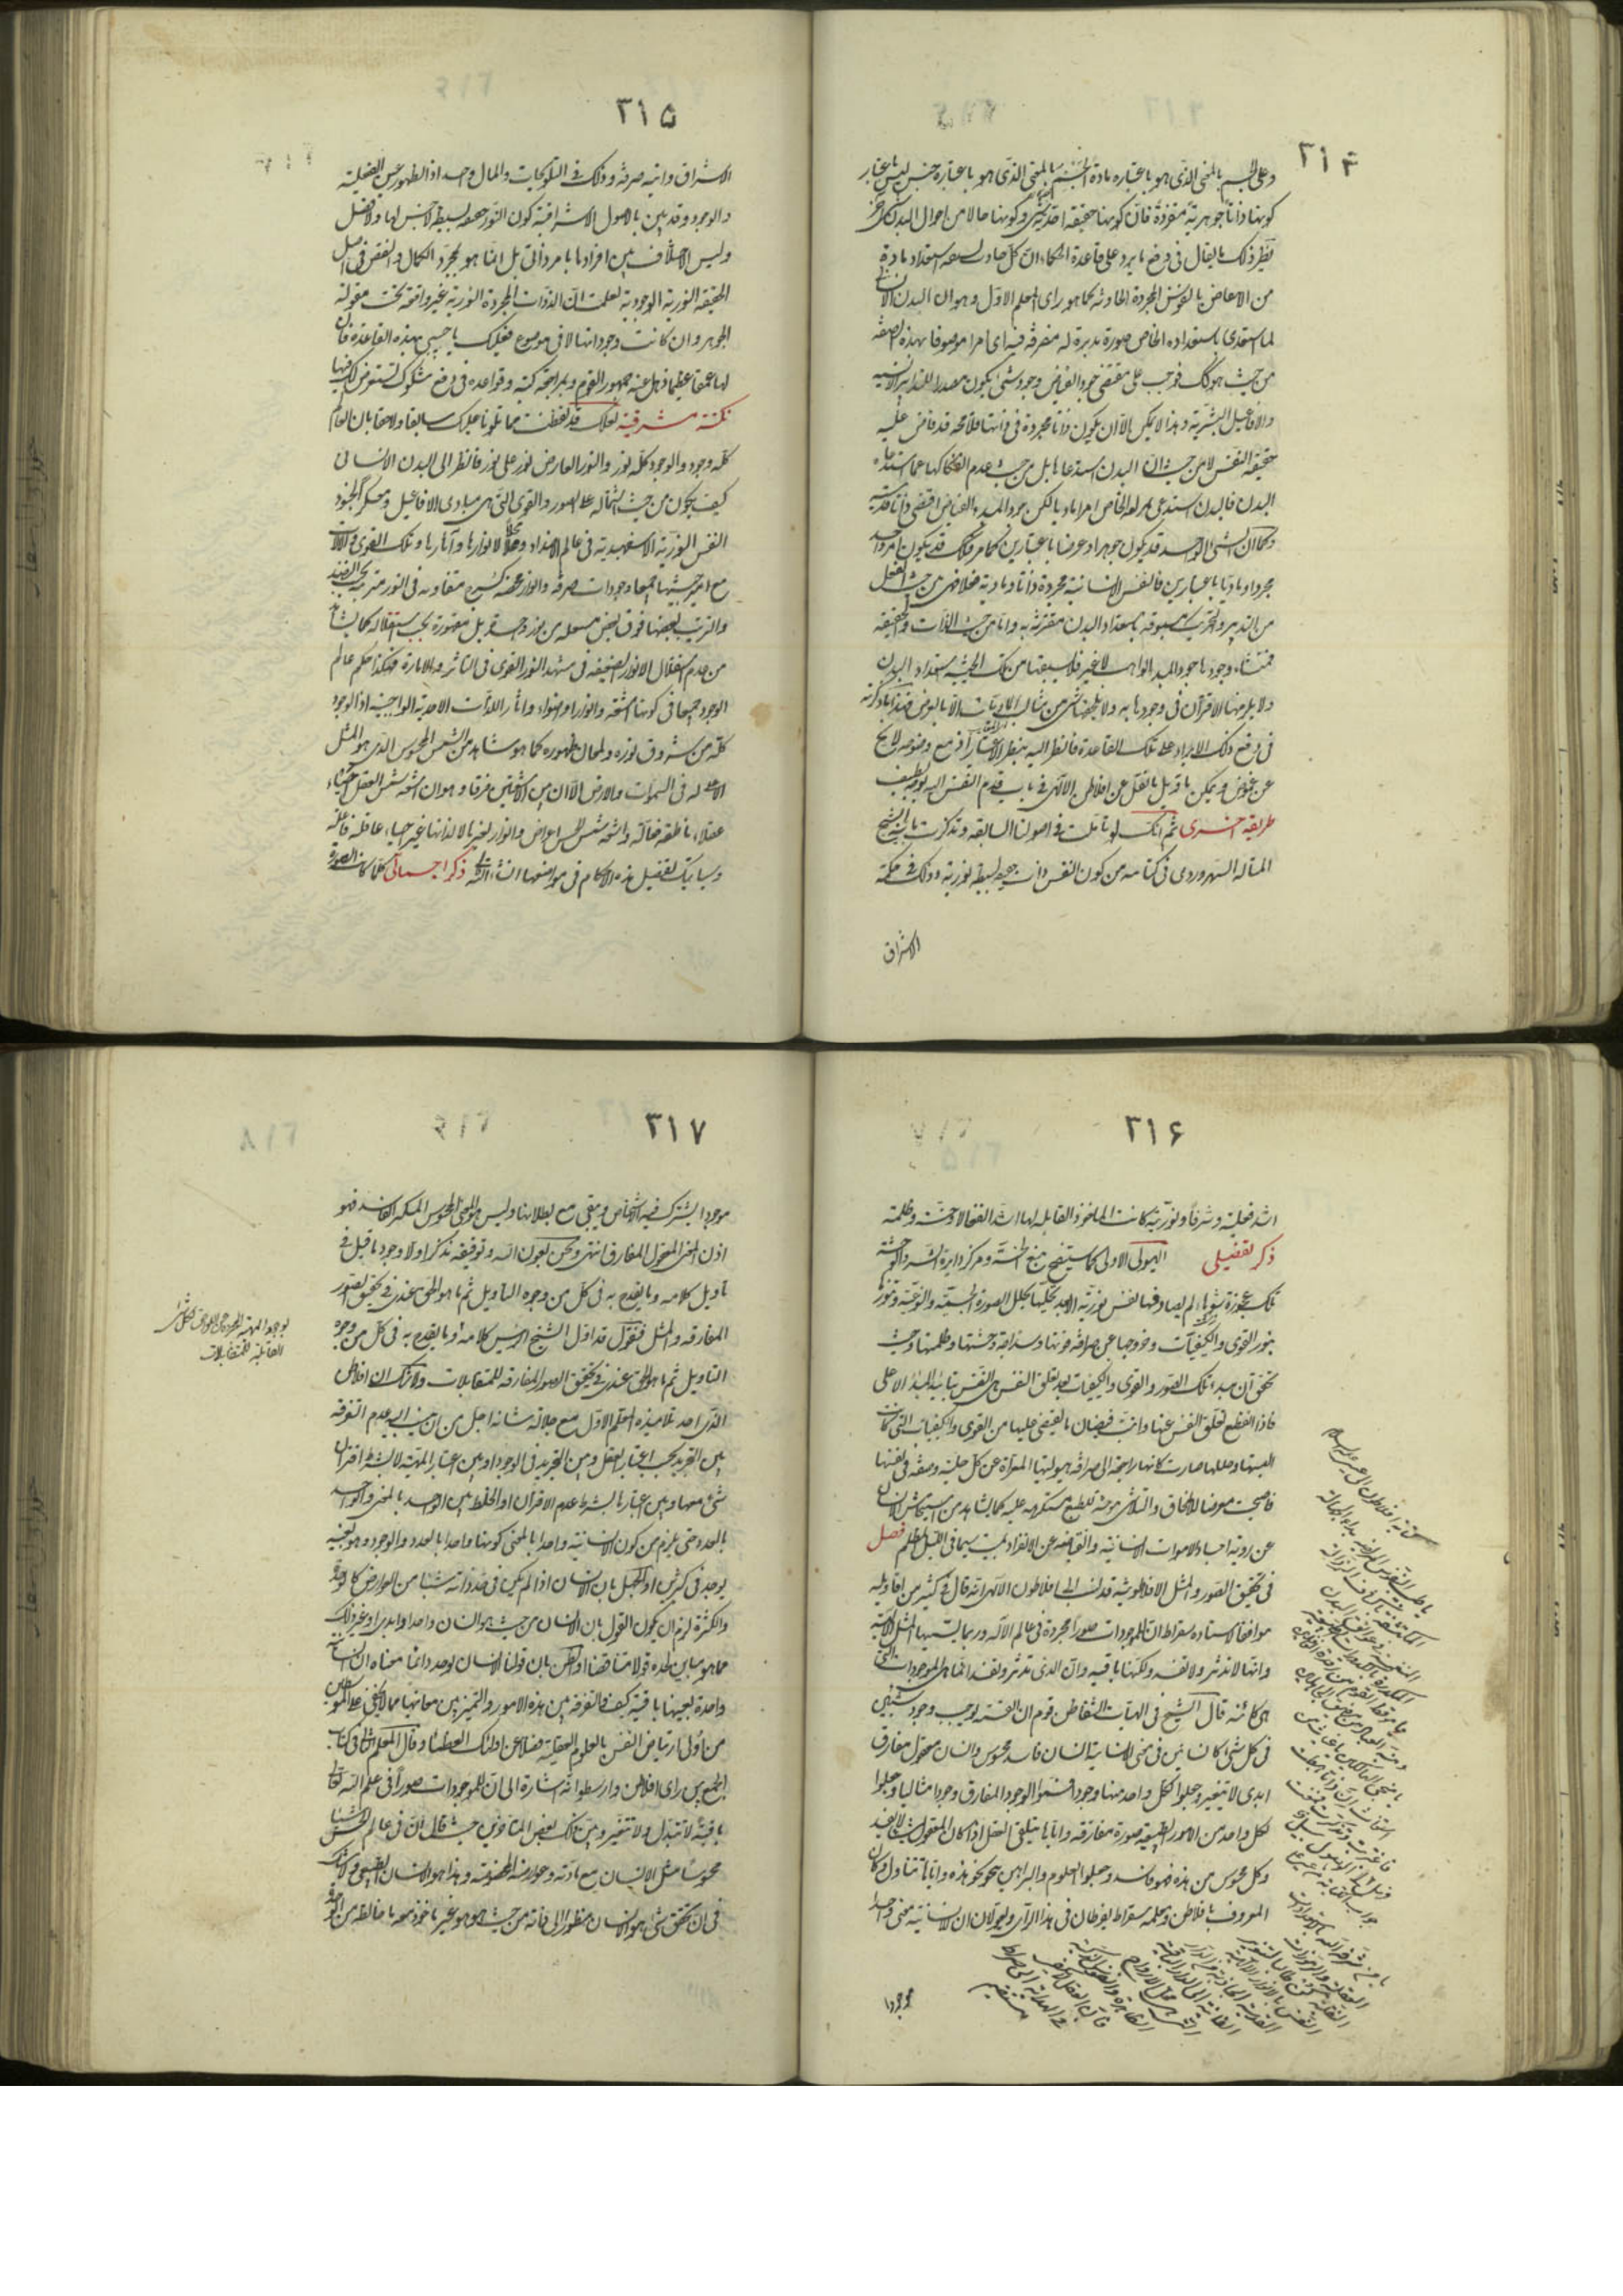 ٣١۴
وعلى الجسم بالمعنى الذى هو باعتباره مادة لا الجسم بالمعنى الذى هو باعتباره جنس ليس باعتبار
كونها ذاتا جوهرية منفردة فان كونها حقيقة
نظير ذلك ما يقال فى دفع ما يرد على قاعدة الحكماء ان كل حادث يسبقه استعداد مادة
من الانتقاض بالنفوس المجردة الحادثة كما هو راى المعلم الاول وهو ان البدن الانسانى
لما استدعى باستعداده الخاص صورة مدبرة له متصرفة فيه اى امرا موصوفا بهذه الصفة
من حيث هو كذلك فوجب على مقتضى جود الفياض وجود شىء يكون مصدرا للتدابير الانسية
والافاعيل البشرية وهذا لا يمكن الا ان يكون ذاتا مجردة فى ذاتها فلا محة قد فاض عليه
حقيقة النفس لا من حيث ان البدن استدعاها بل من حيث عدم انفكاكها عما استدعاه
البدن فالبدن استدعى بمزاجه الخاص امرا ماديا لكن جود المبدء الفياض اقتضى ذاتا قدسية
وكما ان الشىء الواحد قد يكون جوهرا وعرضا باعتبارين كما مر فكذلك قد يكون امر واحد
مجردا وماديا باعتبارين فالنفس الانسانية مجردة ذاتا ومادية فعلا فهى من حيث الفعل
من التدبير والتحريك مسبوقة باستعداد البدن مقترنة به واما من حيث الذات والحقيقة
فمنشاء وجودها جود المبدء الواهب لا غير فلا يسبقها من تلك الحيثية استعداد البدن
ولا يلزمها الاقتران فى وجودها به ولا يلحقها شىء من مثالب الماديات الا بالعرض فهذا ما ذكرته
فى دفع ذلك الايراد على تلك القاعدة فانظر اليه بنظر الاعتبار
عن غموض ويمكن تاويل ما نقل عن افلاطن الالهى فى باب قدم النفس اليه بوجه لطيف
طريقه اخرى ثم انك لو تاملت فى اصولنا السابقه وتذكرت ما بينه الشيخ
المتاله السهروردى فى كتابه من كون النفس ذات حقيقة بسيطة نورية وذلك فى حكمة
الاشراق
٣١۵
الاشراق وانية صرفة وذلك فى التلويحات والمال واحد اذ الظهور عين الفعلية
والوجود وقد تبين بالاصول الاشراقية كون النور حقيقة بسيطة لا جنس لها ولا فصل
وليس الاختلاف بين افرادها بامر ذاتى بل انما هو بمجرد الكمال والنقص فى اصل
الحقيقة النورية الوجودية لعلمت ان الذوات المجردة النورية غير واقعة تحت مقولة
الجوهر وان كانت وجوداتها لا فى موضوع فعليك يا حبيبى بهذه القاعدة فان
لها عمقا عظيما ذهل عنه جمهور القوم وبمراجعة كتبه وقواعده فى دفع شكوك تستعرض لك فيها
نكتة مشرقية لعلك قد تفطنت مما تلوناه عليك سابقا ولاحقا بان العالم
كله وجود والوجود كله نور والنور العارض نور على نور فانظر الى البدن الانسانى
كيف يكون من حيث اشتماله على الصور والقوى التى هى مبادى الافاعيل ومعسكر الجنود
النفس النورية الاسفهبدية فى عالم الاضداد ومحلا لانوارها وآثارها وتلك القوى والآلات
مع حيثيتها جميعا وجودات صرفة وانوار محضة كثيرة متفاوتة فى النور مترتبة
والترتيب بعضها فوق بعض مستعملة من نور واحد قوى بل مقهورة تحت استقلاله كما يشاهد
من عدم استقلال الانوار الضعيفة فى مشهد النور القوى فى التاثير والانارة فهكذا حكم عالم
الوجود جميعا فى كونها اشعة وانوارا واضواء وآثار للذات الاحدية الواجبية اذ الوجود
كله من شروق نوره ولمعان ظهوره كما هو مشاهد من الشمس المحسوس الذى هو المثل
الاعلى له فى السموات والارض الا ان بين الاشعتين فرقا وهو ان اشعة شمس العقل احياء
عقلاء ناطقة فعالة واشعة شمس الحس اعراض وانوار لغيرها لا لذاتها غير احياء عاقلة فاعلة
وسياتيك تفصيل هذه الاحكام فى مواضعها انشاء الله تعالى ذكر اجمالى كلما كانت الصورة
٣١۶
اشد فعلية وشرفا ونورية كانت المادة القابلة لها اشد انفعالا وخسة وظلمة
ذكر تفصيلى الهيولى الاولى كما ستتضح منبع الخسة ومركز دايرة الشر والوحشة
تلك عجوزة شوهاء لم يصادفها نفس نورية الا بعد تحليها بحلل الصورة الجسمية والنوعية وتنورها
بنور القوى والكيفيات وخروجها عن صرافة قوتها وسذاجة وحشتها وظلمتها وحيث
تحقق ان مبدء تلك الصور والقوى والكيفيات بعد تعلق النفس هى النفس بتاييد المبدء الاعلى
فاذا انقطع تعلق النفس عنها وانبت فيضان ما يفيض عليها من القوى والكيفيات التى كانت
البستها وحللها صارت كانها راجعة الى صرافة هيوليتها المعراة عن كل حلية وصفة فى نفسها
فاصبحت معرضا للانمحاق والتلاشى موحشة للطبع مستكرهة عليه كما يشاهد من استيحاش الانسان
عن روية اجساد الاموات الانسانية وانقباضه عن الانفراد بميت سيما فى الليل المظلم فصل
فى تحقيق الصور والمثل الافلاطونية قد نسب الى افلاطون الالهى انه قال فى كثير من اقاويله
موافقا لاستاده سقراط ان للموجودات صورا مجردة فى عالم الاله وربما يسميها المثل الالهية
وانها لا تدثر ولا تفسد ولكنها باقية وان الذى تدثر وتفسد انما هى الموجودات التى
هى كائنة قال الشيخ فى الهيات الشفا ظن قوم ان القسمة توجب وجود شيئين
فى كل شىء كانسانين فى معنى الانسانية انسان فاسد محسوس وانسان معقول مفارق
ابدى لا يتغير وجعلوا لكل واحد منهما وجودا فسموا الوجود المفارق وجودا مثاليا وجعلوا
لكل واحد من الامور الطبيعية صورة مفارقة واياها يتلقى العقل اذا كان المعقول شيئا لا يفسد
وكل محسوس من هذه فهو فاسد وجعلوا العلوم والبراهين تنحو نحو هذه واياها تتناول وكان
المعروف بافلاطن ومعلمه سقراط يفرطان فى هذا الراى ويقولان ان للانسانية معنى واحدا
موجودا
٣١٧
موجودا يشترك فيه الاشخاص ويبقى مع بطلانها وليس هو المعنى المحسوس المتكثر الفاسد فهو
اذن المعنى المعقول المفارق انتهى ونحن بعون الله وتوفيقه نذكر اولا وجوه ما قيل فى
تاويل كلامه وما يقدح به فى كل من وجوه التاويل ثم ما هو الحق عندى فى تحقيق الصور
المفارقة والمثل فنقول قد اول الشيخ الرئيس كلامه
التاويل ثم ما هو الحق عندى فى تحقيق الصور المفارقة للمتقابلات ولا شك ان افلاطن
الذى احد تلاميذه المعلم الاول مع جلالة شانه اجل من ان ينسب اليه عدم التفرقة
بين التجريد بحسب اعتبار العقل وبين التجريد فى الوجود او بين اعتبار المهية لا بشرط اقتران
شىء معها وبين اعتبارها بشرط عدم الاقتران او الخلط بين الواحد بالمعنى والواحد
بالعدد حتى يلزم من كون الانسانية واحدا بالمعنى كونها واحدا بالعدد والوجود وهو بعينه
يوجد فى كثيرين او الجهل بان الانسان اذا لم يكن فى حد ذاته شيئا من العوارض كالوحدة
والكثرة لزم ان يكون القول بان الانسان من حيث هو انسان واحد او ابدى او غير ذلك
مما هو مباين لحده قولا متناقضا او الظن بان قولنا الانسان يوجد دائما معناه ان انسانية
واحدة بعينها باقية كيف والتفرقة بين هذه الامور والتمييز بين معانيها مما لا يخفى على المتوسطين
من اولى ارتياض النفس بالعلوم العقلية فضلا عن اولئك العظماء وقال المعلم الثانى فى كتاب
الجمع بين رايى افلاطن وارسطو انه اشارة الى ان للموجودات صورا فى علم الله تعالى
باقية لا تتبدل ولا تتغير وبين ذلك بعض المتاخرين حيث قال ان فى عالم الحس شيئا
محسوسا مثل الانسان مع مادته وعوارضه المخصوصة وهذا هو الانسان الطبيعى ولا شك
فى ان يتحقق شىء هو الانسان منظورا الى ذاته من حيث هو هو غير ماخوذ معه ما خالطه من الوحدة